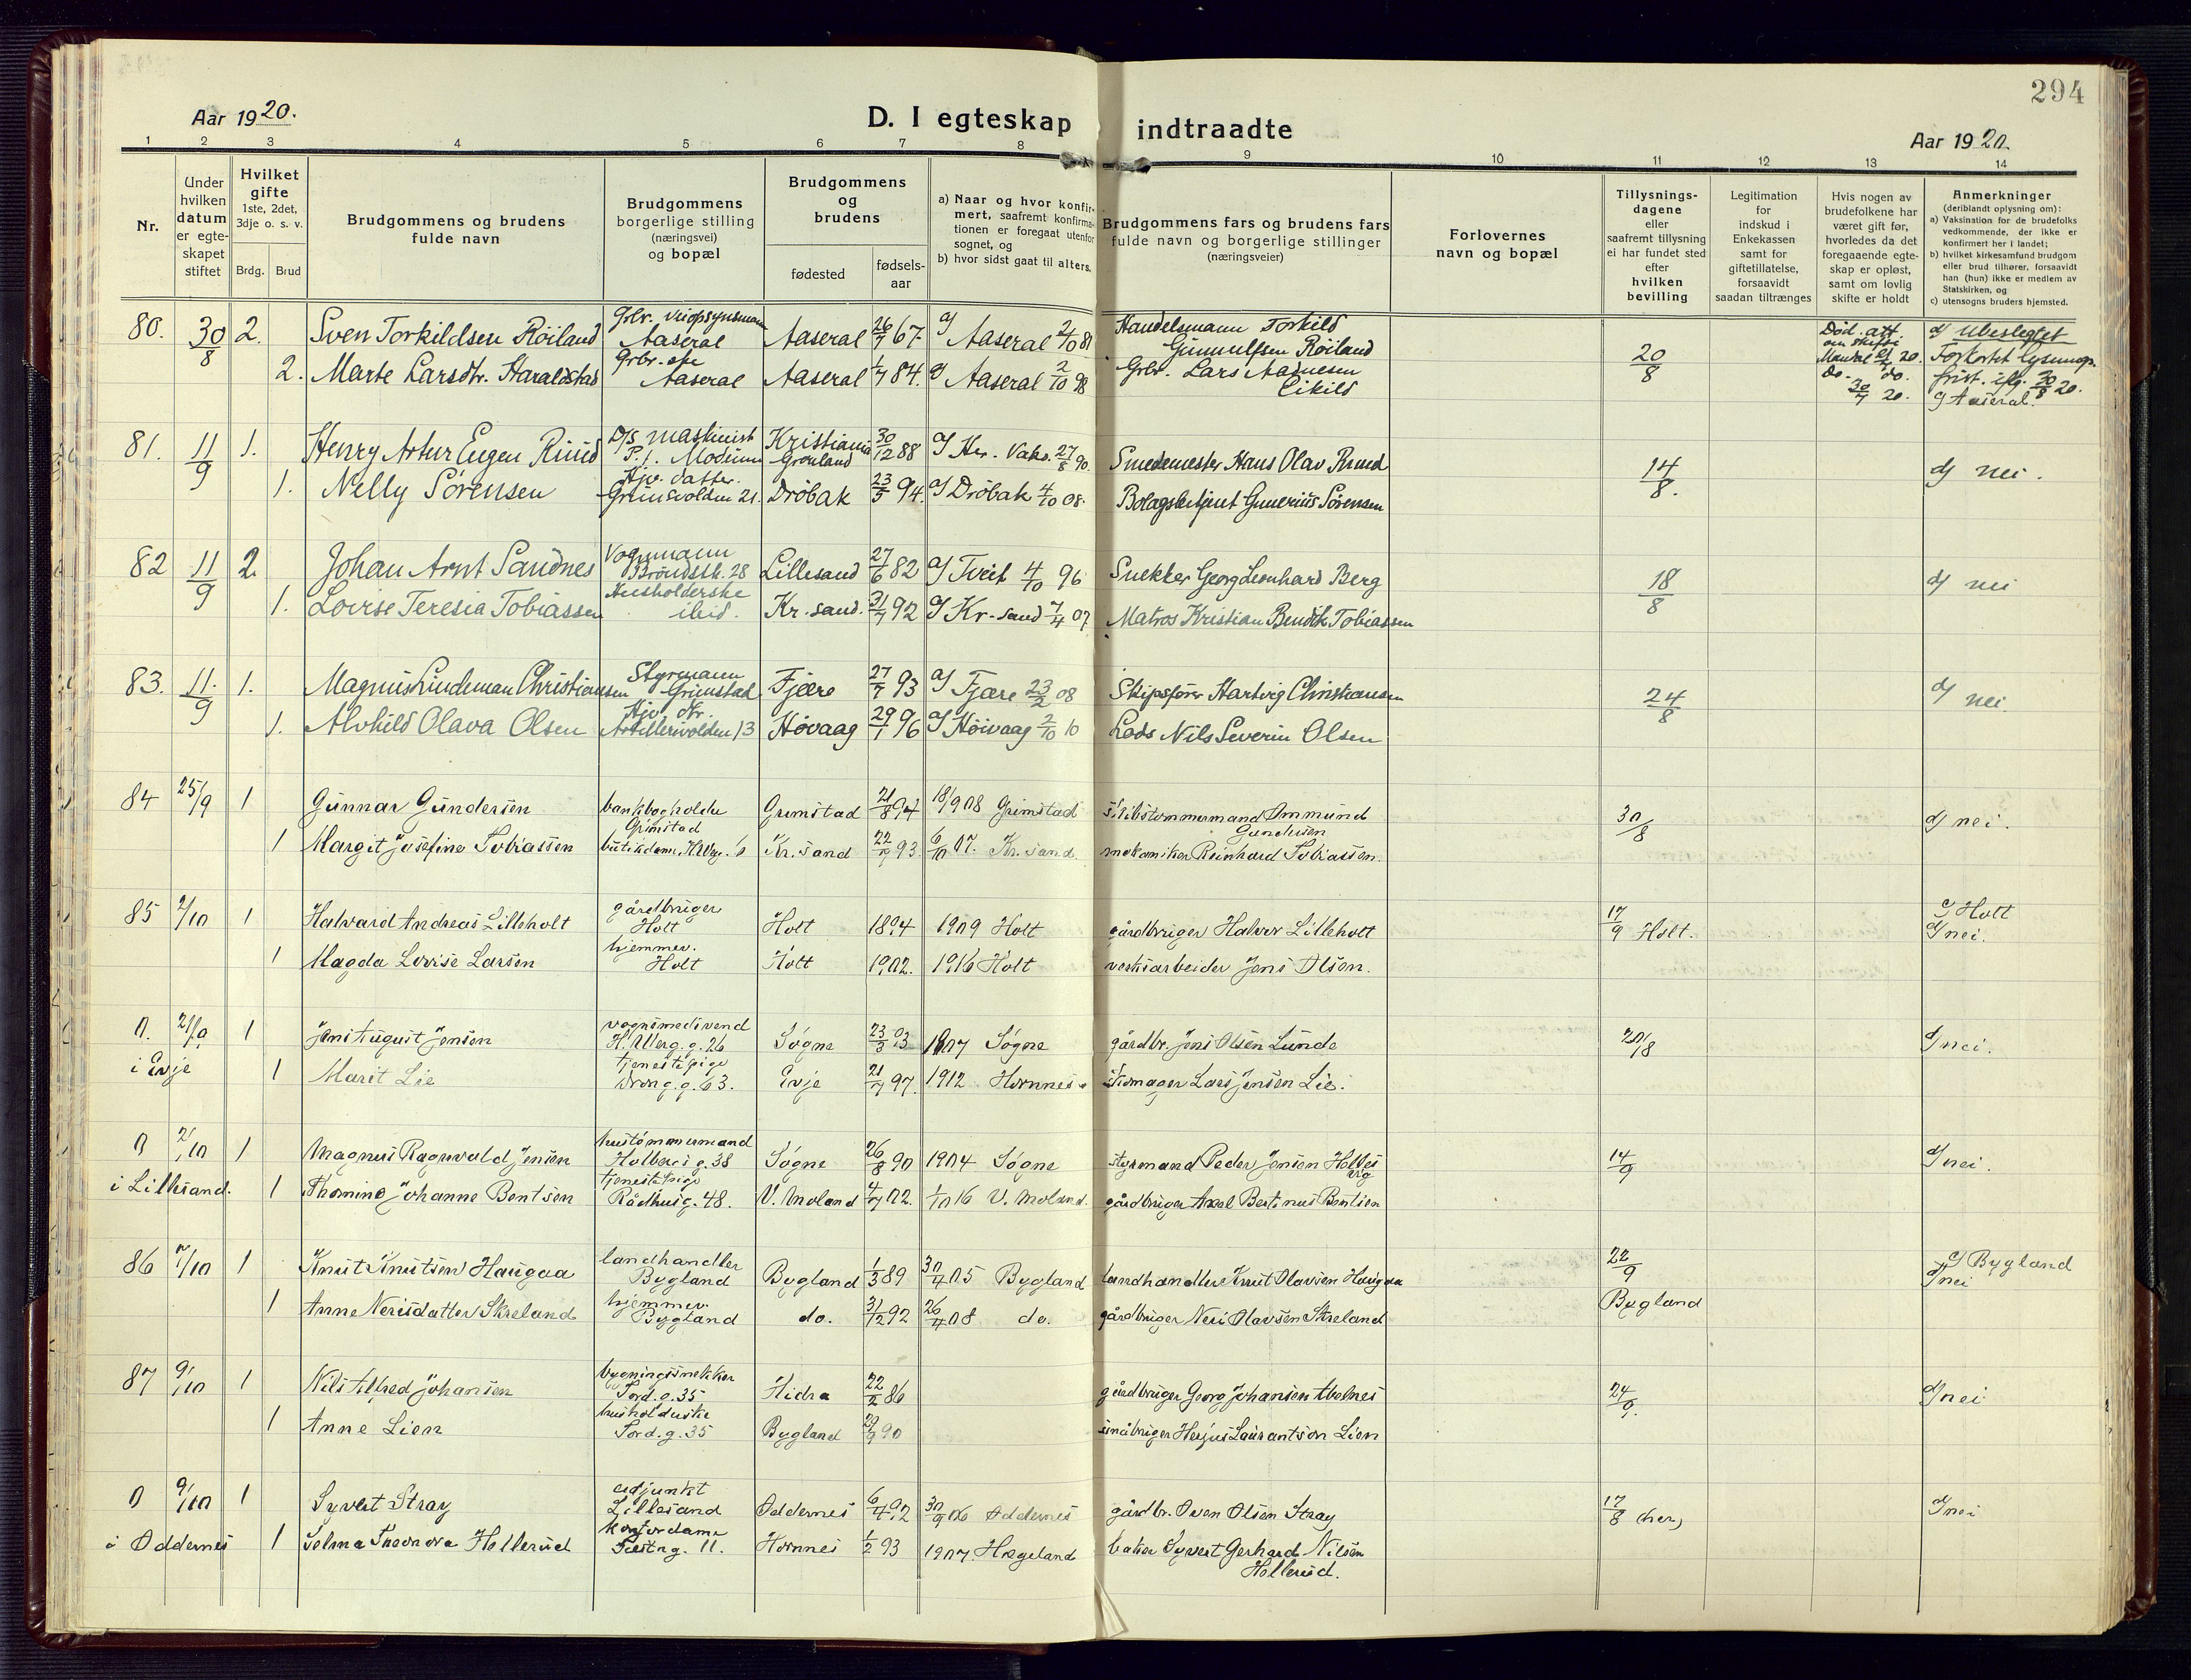 294
Aar 1920.
D. I egteskap indtraadte
Aar 1920.
1 2 3 4 5 6 7 8 9 10 11 12 13 14
Nr.
Under hvilken datum er egteskapet stiftet
Hvilket gifte 1ste, 2det, 3dje o. s. v.
Brdg. Brud
Brudgommens og brudens fulde navn
Brudgommens og brudens borgerlige stilling (næringsvei) og bopæl
Brudgommens og brudens
fødested fødsels-aar
a) Naar og hvor konfirmert, saafremt konfirmationen er foregaat utenfor sognet, og
b) hvor sidst gaat til alters.
Brudgommens fars og brudens fars fulde navn og borgerlige stillinger (næringsveier)
Forlovernes navn og bopæl
Tillysningsdagene eller saafremt tillysning ei har fundet sted efter hvilken bevilling
Legitimation for indskud i Enkekassen samt for giftetillatelse, forsaavidt saadan tiltrænges
Hvis nogen av brudefolkene har været gift før, hvorledes da det foregaaende egteskap er opløst, samt om lovlig skifte er holdt
Anmerkninger (deriblandt oplysning om):
a) Vaksination for de brudefolks vedkommende, der ikke er konfirmert her i landet;
b) hvilket kirkesamfund brudgom eller brud tilhører, forsaavidt han (hun) ikke er medlem av Statskirken, og
c) utensogns bruders hjemsted.
80. 30/8 2. Sven Torkildsen Röiland Grbr. veiopsynsmann Aaseral Aaseral 26/7 67. a) Aaseral 2/10 81 Handelsmann Torkild Gunnulfsen Röiland 20/8 d) Ubeslegtet
2. Marte Larsdtr. Haraldstad Grbr. Aaseral Aaseral 1/7 84. a) Aaseral 2/10 98 Grbr. Lars Eikild do. do. 30/7 20. frist. 30/8 20. c) Aaseral.
81. 11/9 1. Henry Artur Eugen Ruud D/S maskinist Modum Kristiania Grönland 30/12 88 Smedemester Hans Olav Ruud 14/8. d) nei.
1. Nelly Sörensen Hjv. datter Grimsvolden 21. Dröbak 23/5 94. a) Dröbak 4/10 08. Bolagsbetjent Gunerius Sörensen
82 11/9 2. Johan Arnt Sandnes Vognmann 28 Lillesand 27/6 82 a) Tveit 4/10 96 Snekker Georg Leonhard Berg 18/8 d) nei
1. Lovise Teresia Tobiassen Husholderske ibid. Kr.sand. 31/7 92 a) Kr.sand 7/4 07 Matros Kristian Bendik Tobiassen
83. 11/9 1. Magnus Lindeman Christiansen Styrmann Grimstad Fjære 27/7 93 a) Fjære 23/2 08 Skipsförer Hartvig Christiansen 24/8 d) nei.
1. Alvhild Olava Olsen Hjv. dtr. Artillerivolden 13 Hövaag 29/1 96 a) Höivaag 2/10 10 Lods Nils Severin Olsen
84 25/9 1 Gunnar Gundersen bankbogholder Grimstad Grimstad 21/8 94 18/9 08 Grimstad skibstömmermand Ommund Gundersen 30/8 d) nei.
1 Margit Josefine Tobiassen Kr.sand 93 6/10 07. Kr.sand. mekaniker Reinhard Tobiassen.
85 2/10 1 Halvard Andreas Lilleholt gårdbruger Holt Holt 1894 1909 Holt gårdbruger Halvor Lilleholt 17/9 Holt. c) Holt d) nei.
1 Magda Lovise Larsen hjemmev. Holt Holt 1902. 1916 Holt verksarbeider Jens Olsen.
0. i Evje 21/9 1 Jens August Jensen H. Werg. g. 26 Søgne 23/3 93 1907 Søgne gårdbr. Jens Olsen Lunde 20/8 d) nei.
1 Marit Lie tjenestepige Dron. g. 63. Evje 21/7 97. 1912 Hornnes skomager Lars Jensen Lie.
0 i Lillesand. 2/10 1 Magnus Ragnvald Jensen hustømmermand Holbergs g. 38 Søgne 26/8 90 1904 Søgne styrmand Peder Jensen 14/9 d) nei.
1 Thomine Johanne Bentsen tjenestepige Rådhusg. 48. V. Moland 4/7 02. 1/10 16 V. Moland. gårdbruger Axel Bertinus Bentsen
86 2/10 1 Knut Knutsen Haugaa landhandler Bygland Bygland 1/3 89 30/4 05 Bygland landhandler Knut Olavsen Haugaa 22/9 Bygland c) Bygland d) nei
1 Anne Nerisdatter Skreland hjemmev. Bygland do. 31/12 92 26/4 08 do. gårdbruger Neri Olavsen Skreland
87 9/10 1 Nils Alfred Johansen bygningssnekker Tord. g. 35 Hidra 22/2 86 gårdbruger Georg Johansen Abelnes 24/9. d) nei
1 Anne Lien husholderske Tord. g. 35 Bygland 29/9 90 småbruger Lien
0 i Oddernes 9/10 1 Syvert Stray adjunkt Lillesand Oddernes 6/4 92 30/9 06 Oddernes gårdbr. Sven Olsen Stray 17/8 (her) d) nei
1 Selma Theodora Hollerud kontordame Festn g. 11. Hornnes 1/2 93 1907. Hægeland baker Syvert Gerhard Nilsen Hollerud.